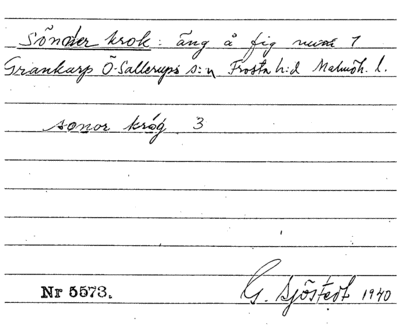 Sönder krok: äng å fig num 1
Grankarp Ö-Sallerups s:n Frosta h:d Malmöh. l.
sonor króg 3
Nr 5573.
G. Sjöstedt 1940